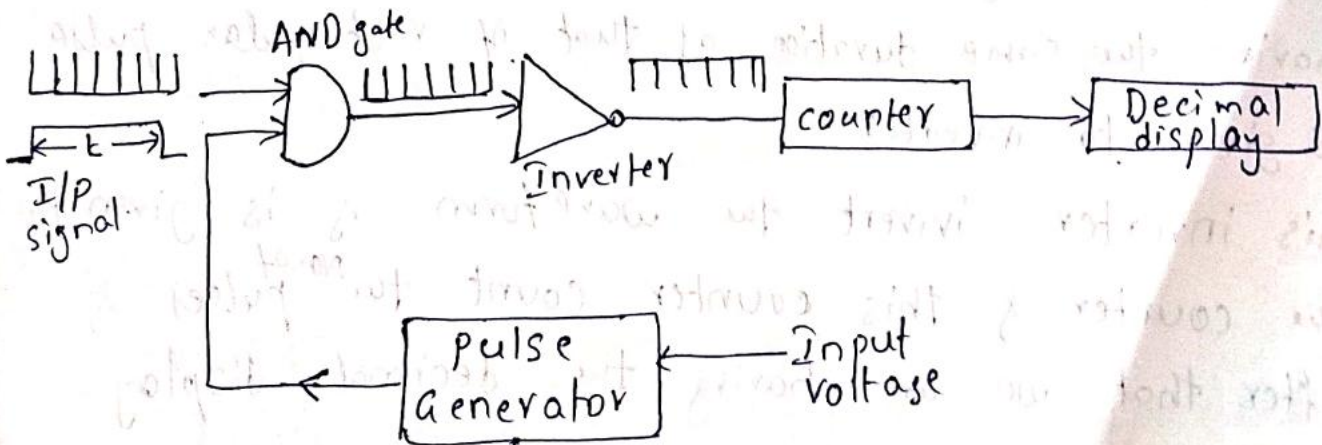 AND gate
t
I/P
signal.
Inverter
counter
Decimal
display
pulse
Generator
Input
voltage